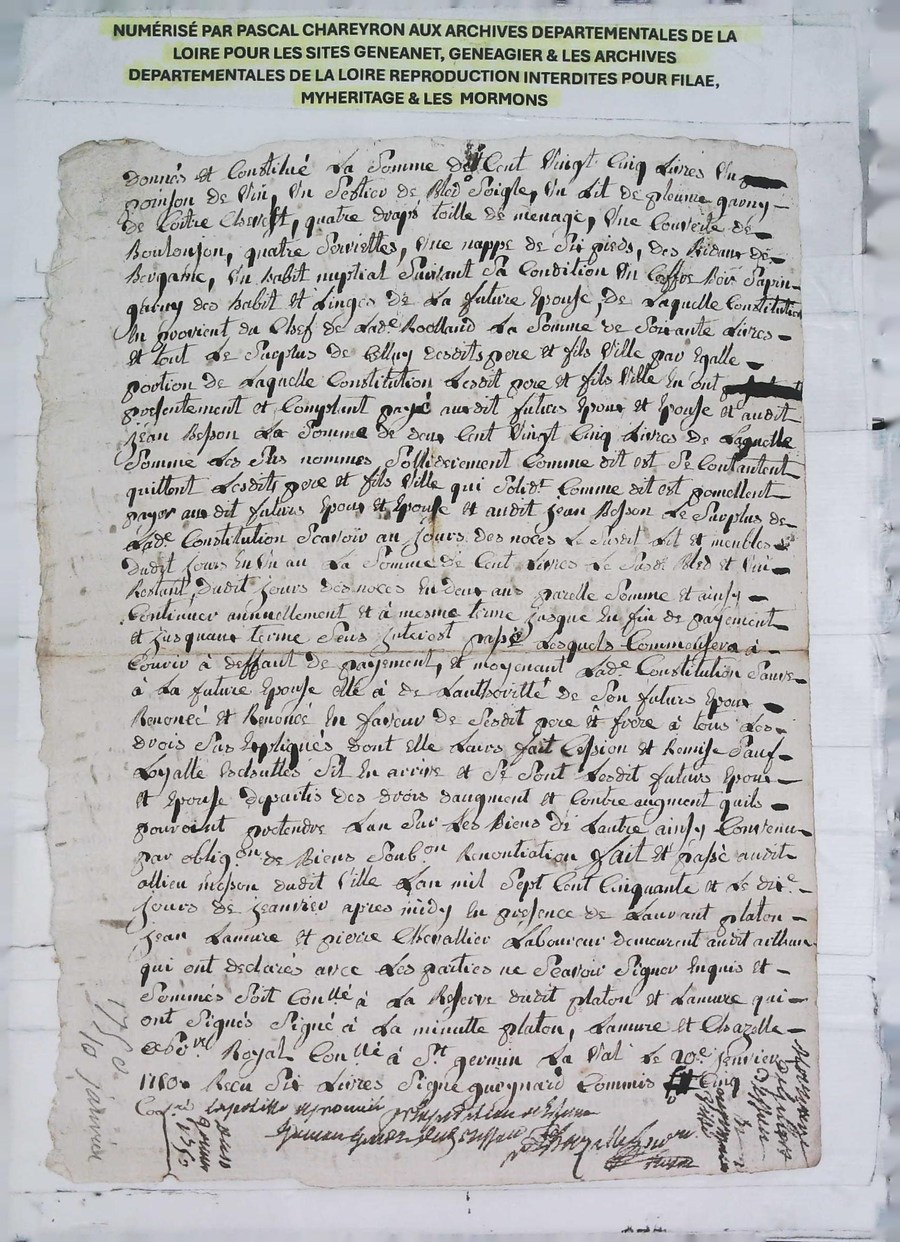 NUMÉRISÉ PAR PASCAL CHAREYRON AUX ARCHIVES DEPARTEMENTALES DE LA
LOIRE POUR LES SITES GENEANET, GENEAGIER & LES ARCHIVES
DEPARTEMENTALES DE LA LOIRE REPRODUCTION INTERDITES POUR FILAE,
MYHERITAGE & LES MORMONS
donnés et Constitué La Somme de Cent Vingt Cinq Livres Un
poinson de Vin, Un Sestier de Bled Seigle, Un Lit de plume garny
de Coitre Chevest, quatre draps toille de menage, Une Couverte de
Boulonjon, quatre Serviettes, Une nappe de Six pieds, des Rideaux de
Bergame, Un habit nuptial Suivant Sa Condition Un Coffre Bois Sapin
garny des habit et Linges de La future Epouse, de Laquelle Constitution
En provient du Chef de Lade Rolland La Somme de Soixante Livres
et tout Le Surplus de Celluy desdits pere et fils Ville par Egalle
portion de Laquelle Constitution Lesdit pere et fils Ville En ont
presentement et Comptant payé audit futurs Epoux et Epouse et audit
Jean Besson La Somme de deux Cent Vingt Cinq Livres de Laquelle
Somme Les Sus nommés Sollidérement Comme dit est Se Contantent
quittent Lesdits pere et fils Ville qui Solidt Comme dit est promettent
payer aus dit futurs Epoux et Epouse et audit Jean Besson Le Surplus de
Lade Constitution Scavoir au Jours des noces Le Susdit Lit et meubles
dudit Jours En Un an La Somme de Cent Livres Le Susd Bled et Vin
Restant, dudit Jours des noces En deux ans pareille Somme et ainsy
Continuer annuellement et à mesme terme Jusque En fin de payement
et Jusquaux terme Sans Interest passé Lesquels Commensera à
Courir à deffaut de payement, et moyenant Lade Constitution Sauve
à La future Epouse elle à de Lauthoritté de Son futurs Epoux
Renoncé et Renonce En faveur de Sesdit pere et frere à tous Les
drois Sus Expliqués dont elle Leurs fait Cession et Remise Sauf
Loyalle Escheutte Sil En arrive et Se Sont Lesdit futurs Epoux
et Epouse departis des drois daugment et Contre augment quils
pouroint pretendre Lun Sur Les Biens de Lautre ainsy Convenu
par obligon de Biens Soubon Renontiation fait et passé audit
allieu maison dudit Ville Lan mil Sept Cent Cinquante et Le dixe
Jours de Jeanvier apres midy En presence de Laurant platon
Jean Lamure et pierre Chevallier Laboureur demeurent audit arthun
qui ont declarés avec Les parties ne Scavoir Signer Enquis et
Sommés Soit Conllé à La Reserve dudit platon et Lamure qui
ont Signés Signé à La minutte platon, Lamure et Chazelle
Royal Conllé à St germin La Val Le 20e Jenvier
1750 Recu Six Livres Signé gueynard Commis
Cinq
1750
10 janvier